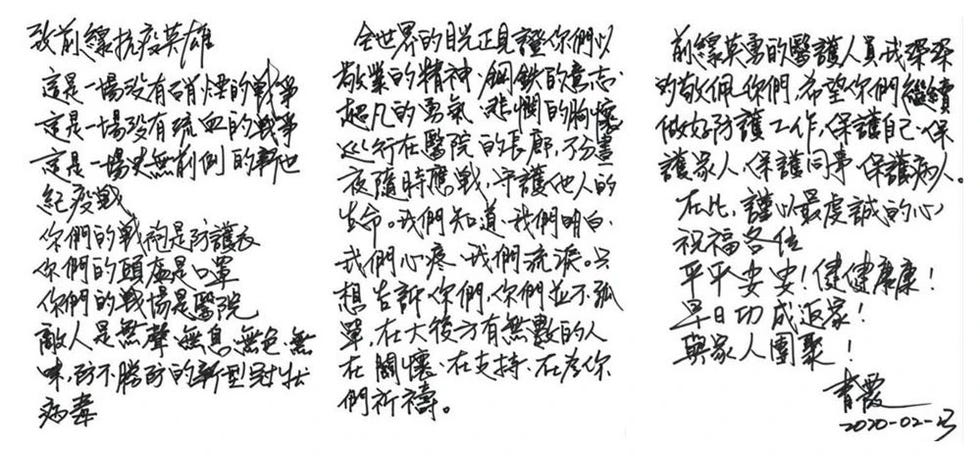 致前線抗疫英雄
這是一場没有硝煙的戰爭
這是一場没有流血的戰爭
這是一場史無前例的新世
紀疫戰
你們的戰袍是防護衣
你們的頭盔是口罩
你們的戰場是醫院
敵人是無聲、無息、無色、無
味，防不勝防的新型冠狀
病毒
全世界的目光正見證你們以
敬業的精神、鋼鐵的意志、
超凡的勇氣、悲憫的胸懷
巡行在醫院的長廊，不分晝
夜隨時應戰，守護他人的
生命。我們知道、我們明白、
我們心疼、我們流淚。只
想告訴你們，你們並不孤
單，在大後方有無數的人
在關懷、在支持、在為你
們祈禱。
前線英勇的醫護人員我深深
的敬佩你們，希望你們繼續
做好防護工作，保護自己、保
護家人，保護同事、保護病人。
在此，謹以最虔誠的心
祝福各位
平平安安！健健康康！
早日功成返家！
與家人團聚！
青霞
2020-02-3